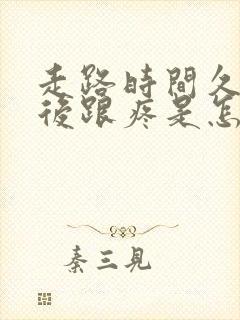 走路時間久
後跟疼是怎
秦三見